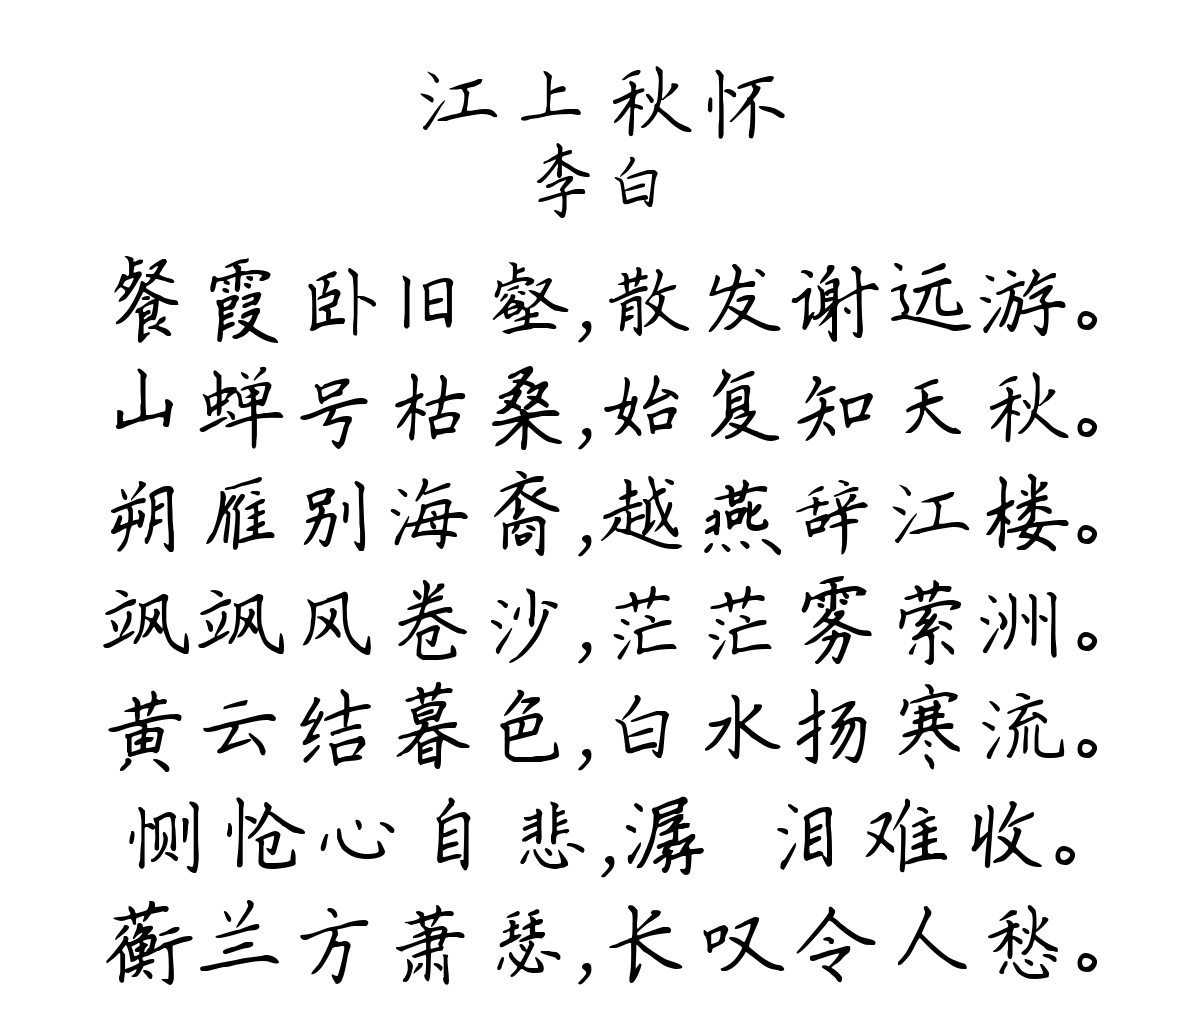 江上秋怀
李白
餐霞卧旧壑,散发谢远游。
山蝉号枯桑,始复知天秋。
朔雁别海裔,越燕辞江楼。
飒飒风卷沙,茫茫雾萦洲。
黄云结暮色,白水扬寒流。
恻怆心自悲,潺 泪难收。
蘅兰方萧瑟,长叹令人愁。